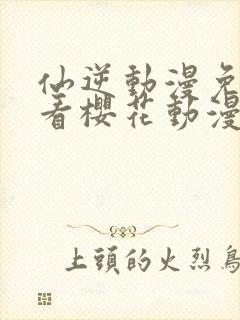 仙逆動漫免
看櫻花動漫
上頭的火烈鳥